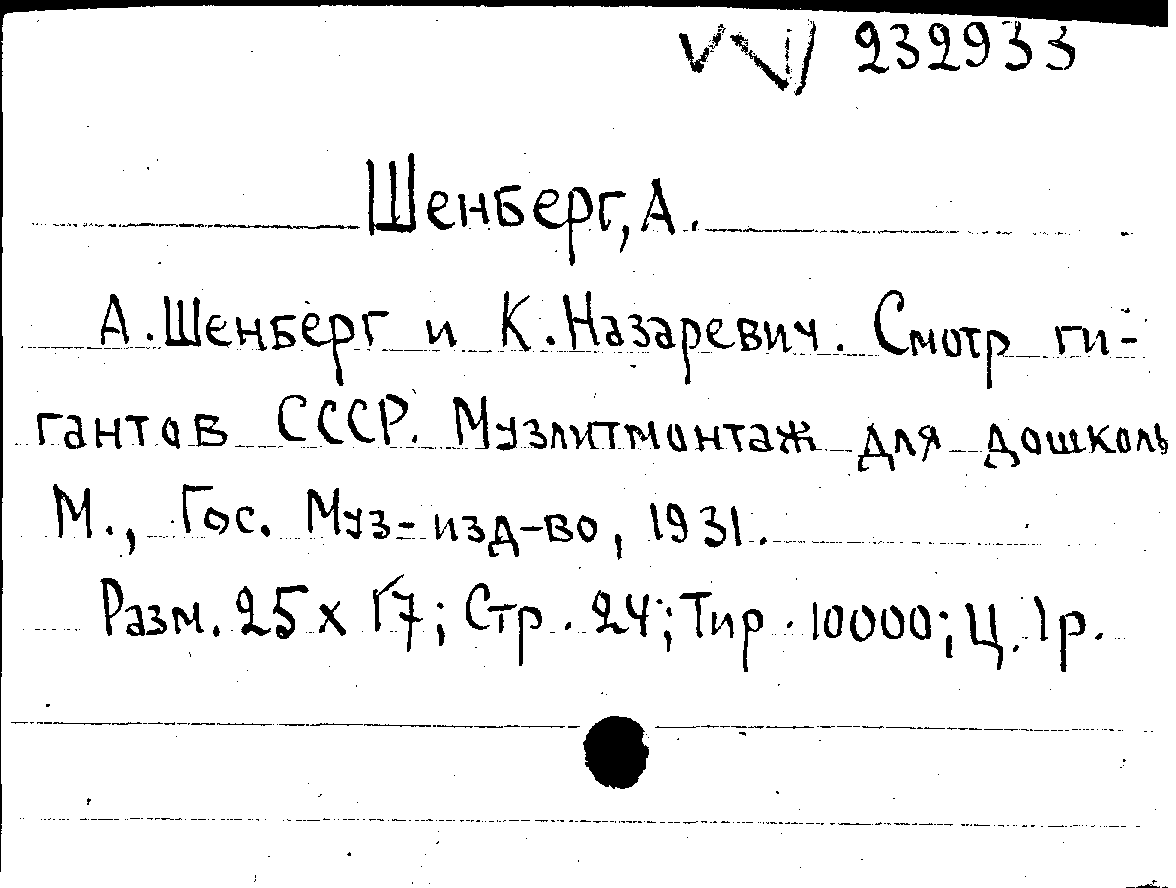 232933
Шенберг, А.
А. Шенберг и К. Назаревич. Смотр ги-
гантов СССР. Музлитмонтаж для дошколь
М., Гос. Муз-изд-во, 1931.
Разм. 25 x 17; Стр. 24; Тир. 10000; Ц. 1р.